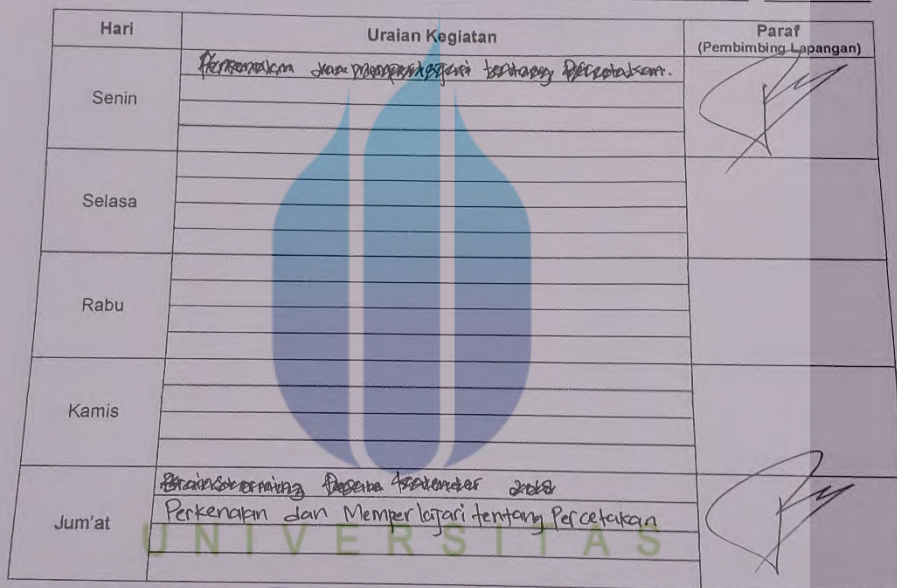 Hari Uraian Kegiatan Paraf
(Pembimbing Lapangan)
Perkenalan dan Memperlajari tentang Percetakan.
Senin
Selasa
Rabu
Kamis
Brainstorming Desain Kalender
Jum'at Perkenalan dan Memperlajari tentang Percetakan
UNIVERSITAS